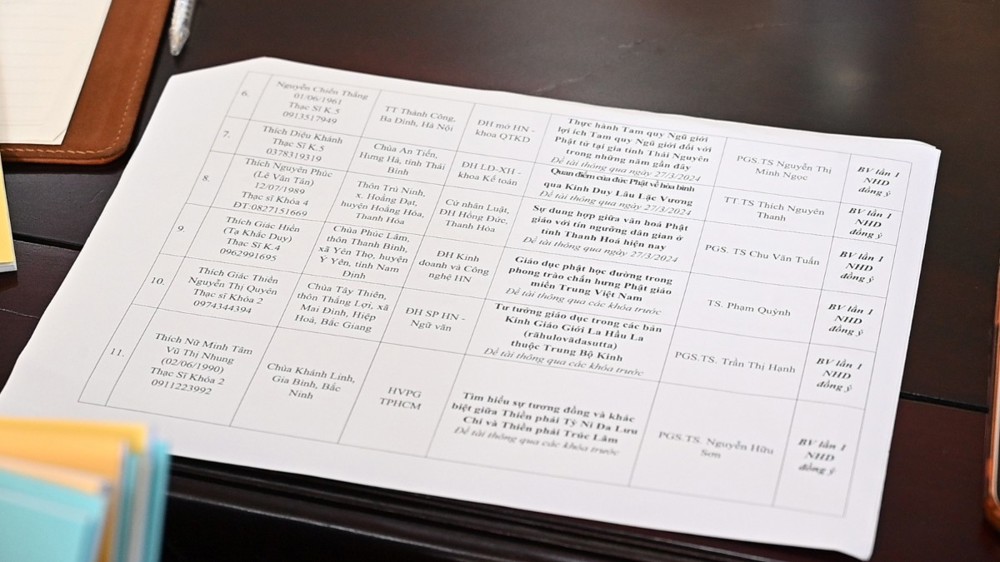 6.
Nguyễn Chiến Thắng
01/06/1961
Thạc Sĩ K.5
0913517949
TT Thành Công,
Ba Đình, Hà Nội
ĐH mở HN -
khoa QTKD
Thực hành Tam quy Ngũ giới
lợi ích Tam quy Ngũ giới đối với
Phật tử tại gia tỉnh Thái Nguyên
trong những năm gần đây
Đề tài thông qua ngày 27/3/2024
PGS.TS Nguyễn Thị
Minh Ngọc
BV lần 1
NHD
đồng ý
7.
Thích Diệu Khánh
Thạc Sĩ K.5
0378319319
Chùa An Tiến,
Hưng Hà, tỉnh Thái
Bình
ĐH LD-XH -
khoa Kế toán
Quan điểm của đức Phật về hòa bình
qua Kinh Duy Lâu Lặc Vương
Đề tài thông qua ngày 27/3/2024
TT.TS Thích Nguyên
Thanh
BV lần 1
NHD
đồng ý
8.
Thích Nguyên Phúc
(Lê Văn Tân)
12/07/1989
Thạc sĩ Khóa 4
ĐT:0827151669
Thôn Trù Ninh,
x. Hoằng Đạt,
huyện Hoằng Hóa,
Thanh Hóa
Cử nhân Luật,
ĐH Hồng Đức,
Thanh Hóa
Sự dung hợp giữa văn hoá Phật
giáo với tín ngưỡng dân gian ở
tỉnh Thanh Hoá hiện nay
Đề tài thông qua ngày 27/3/2024
PGS. TS Chu Văn Tuấn
BV lần 1
NHD
đồng ý
9.
Thích Giác Hiển
(Tạ Khắc Duy)
Thạc Sĩ K.4
0962991695
Chùa Phúc Lâm,
thôn Thanh Bình,
xã Yên Thọ, huyện
Ý Yên, tỉnh Nam
Định
ĐH Kinh
doanh và Công
nghệ HN
Giáo dục phật học đường trong
phong trào chấn hưng Phật giáo
miền Trung Việt Nam
Đề tài thông qua các khóa trước
TS. Phạm Quỳnh
BV lần 1
NHD
đồng ý
10.
Thích Giác Thiền
Nguyễn Thị Quyên
Thạc sĩ Khóa 2
0974344394
Chùa Tây Thiên,
thôn Thắng Lợi, xã
Mai Đình, Hiệp
Hoà, Bắc Giang
ĐH SP HN -
Ngữ văn
Tư tưởng giáo dục trong các bản
Kinh Giáo Giới La Hầu La
(rāhulovādasutta)
thuộc Trung Bộ Kinh
Đề tài thông qua các khóa trước
PGS.TS. Trần Thị Hạnh
BV lần 1
NHD
đồng ý
11.
Thích Nữ Minh Tâm
Vũ Thị Nhung
(02/06/1990)
Thạc Sĩ Khóa 2
0911223992
Chùa Khánh Linh,
Gia Bình, Bắc
Ninh
HVPG
TPHCM
Tìm hiểu sự tương đồng và khác
biệt giữa Thiền phái Tỳ Ni Đa Lưu
Chi và Thiền phái Trúc Lâm
Đề tài thông qua các khóa trước
PGS.TS. Nguyễn Hữu
Sơn
BV lần 1
NHD
đồng ý